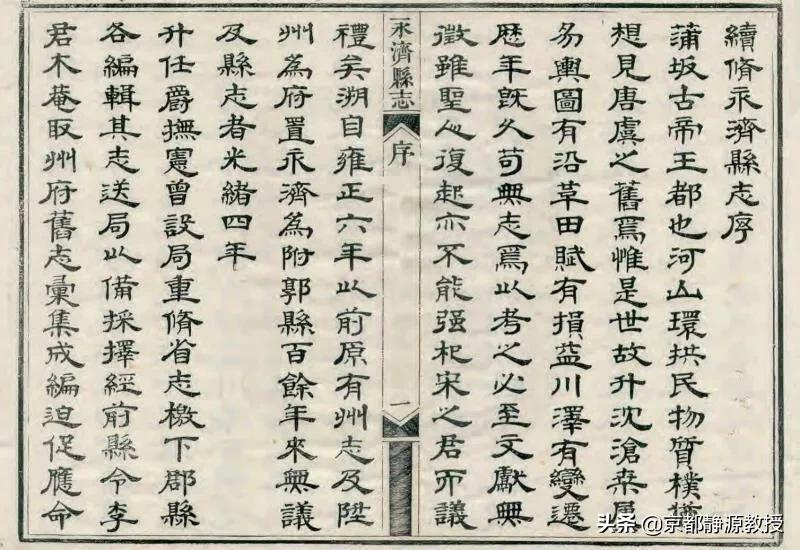 續脩永濟縣志序
蒲坂古帝王都也河山環拱民物質樸猶
想見唐虞之舊焉惟是世故升沈滄桑屢
易輿圖有沿革田賦有損益川澤有變遷
歷年旣久苟無志焉以考之必至文獻無
徵雖聖人復起亦不能强杞宋之君而議
永濟縣志
序
一
禮矣溯自雍正六年以前原有州志及陞
州為府置永濟為附郭縣百餘年來無議
及縣志者光緒四年
升任爵撫憲曾設局重脩省志檄下郡縣
各編輯其志送局以備採擇經前縣令李
君木菴取州府舊志彙集成編迫促應命
头条 @京都静源教授